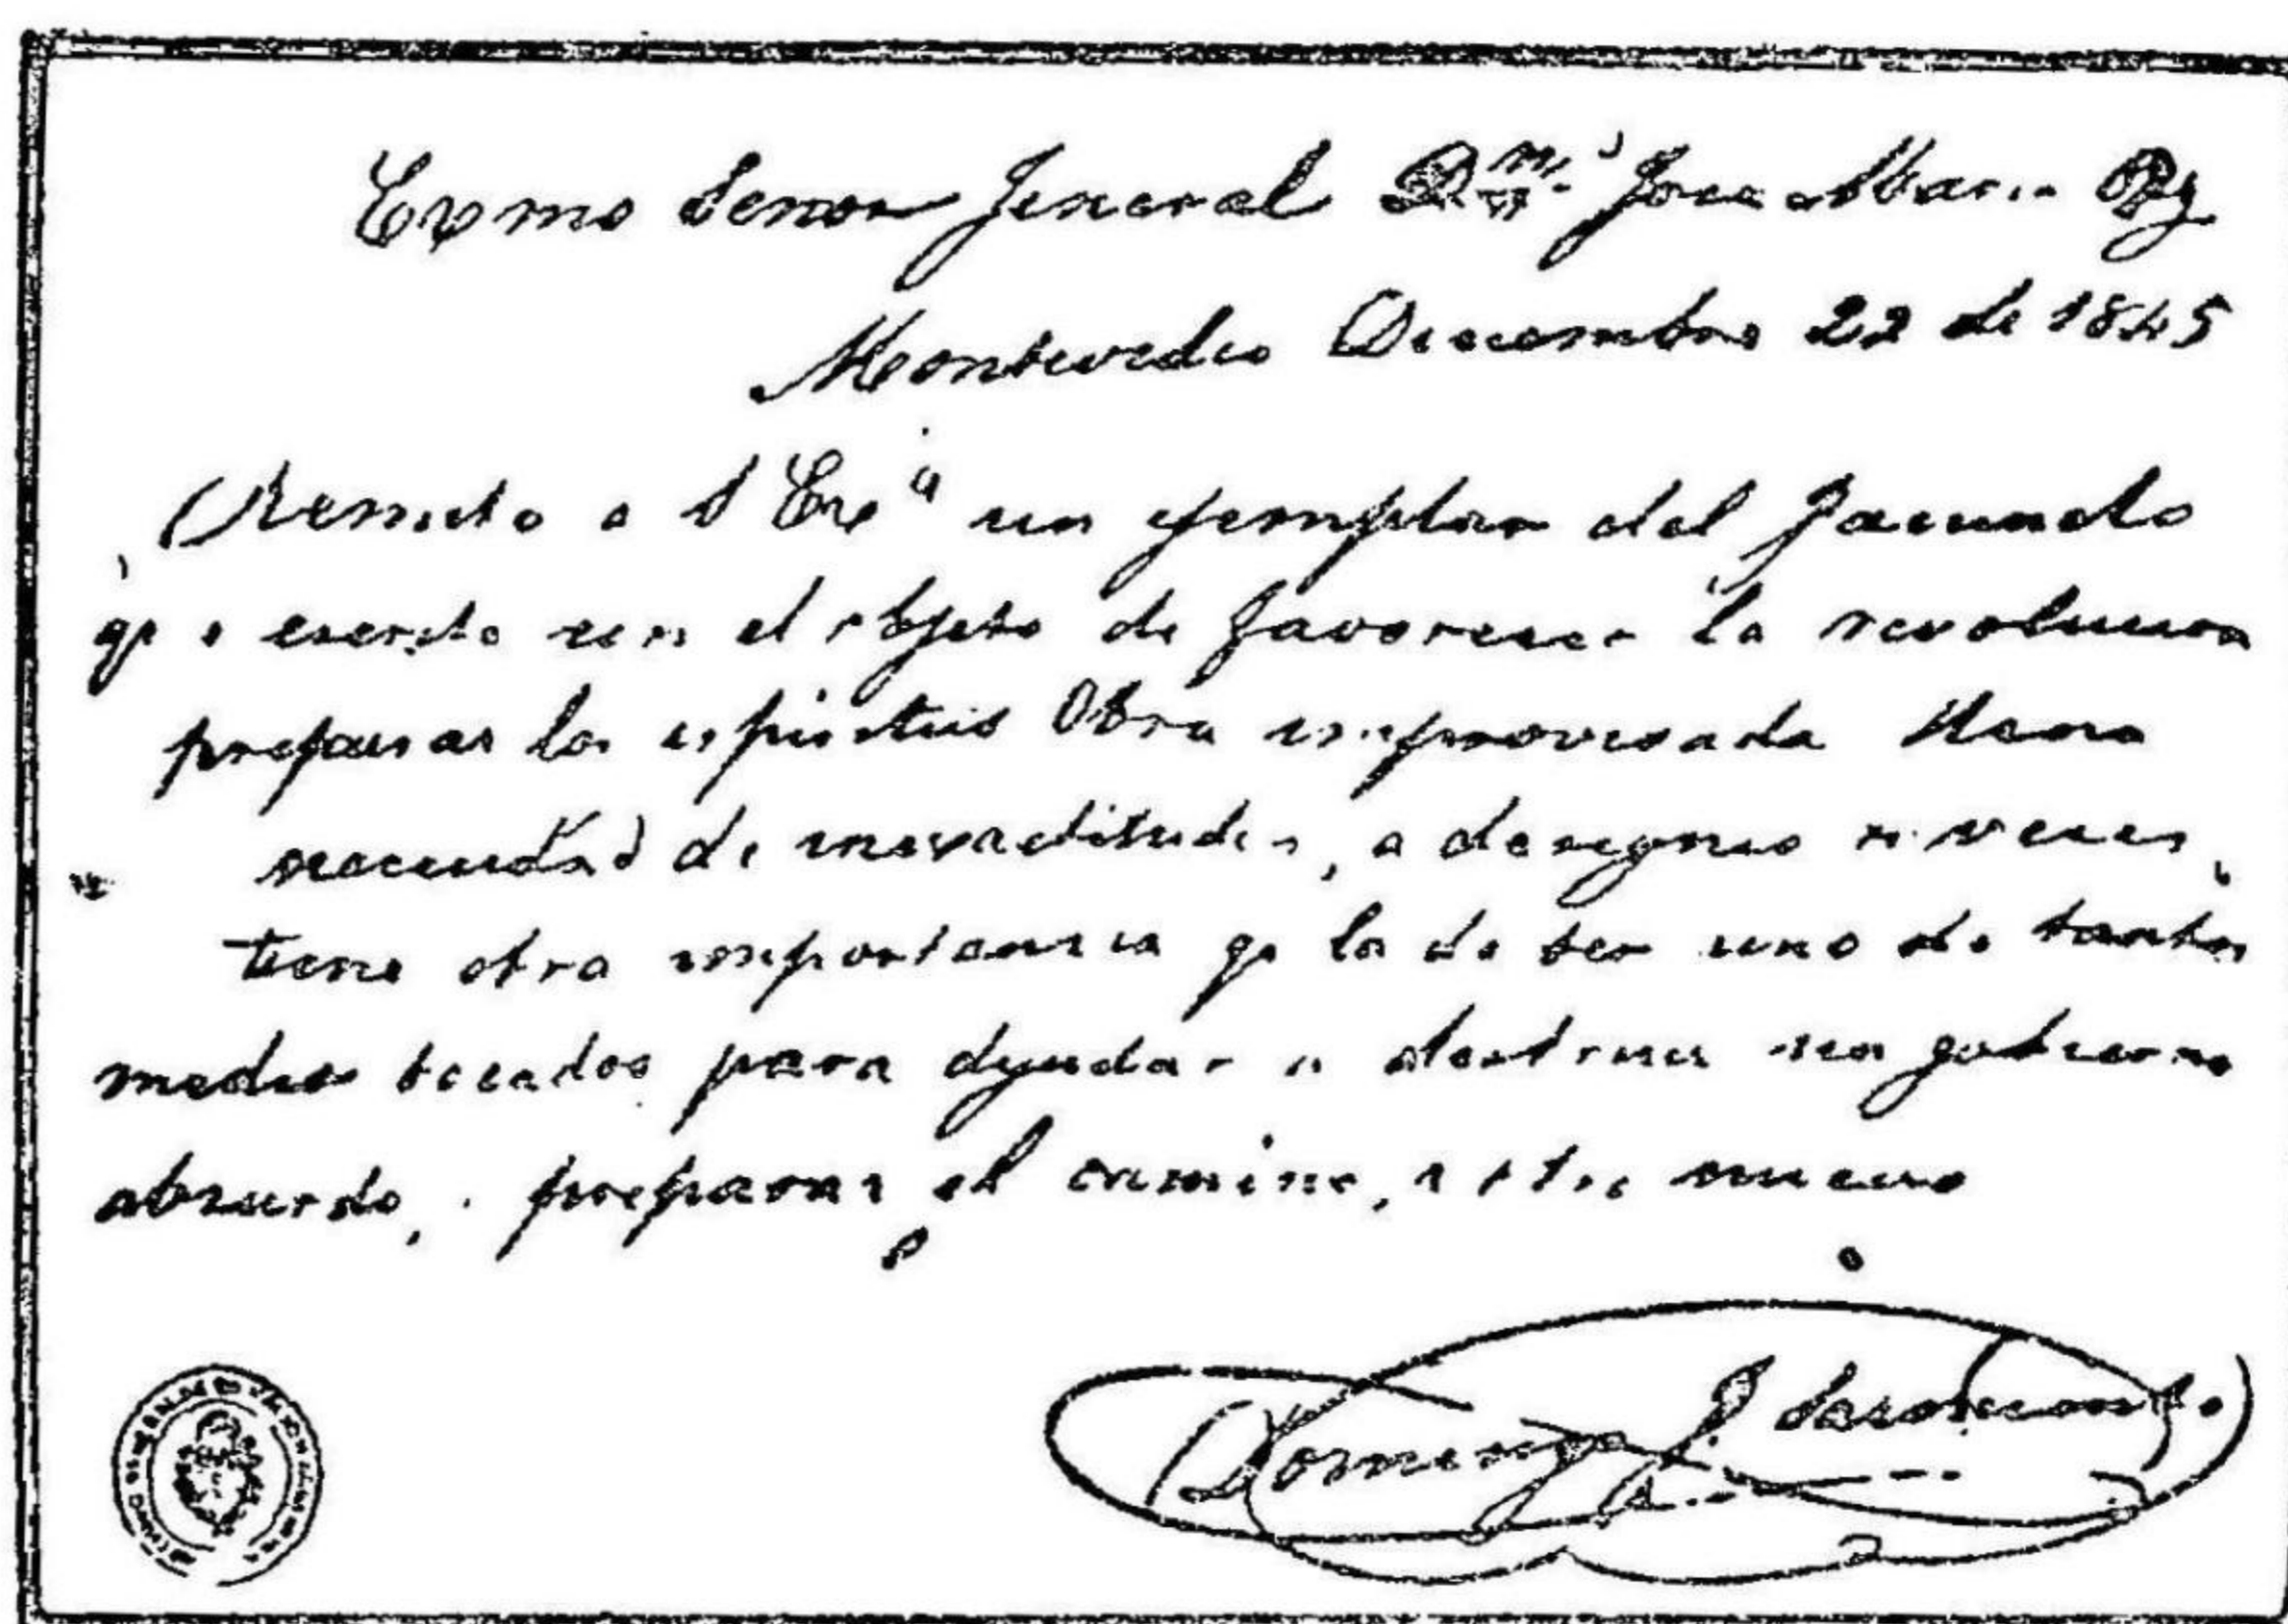 Exmo Senor Jeneral Dn. Jose Maria Paz
Montevideo Diciembre 22 de 1845
Remito a S Exa un ejemplar del Facundo
qe e escrito con el objeto de favorecer la revolucion
preparar los espiritus Obra improvisada llena
necesidad de inexactitudes, a designio a veces,
tiene otra importancia qe la de ser uno de tantos
medios tocados para ayudar a destruir un gobierno
absurdo, preparar el camino, a otro nuevo
Domingo F. Sarmiento